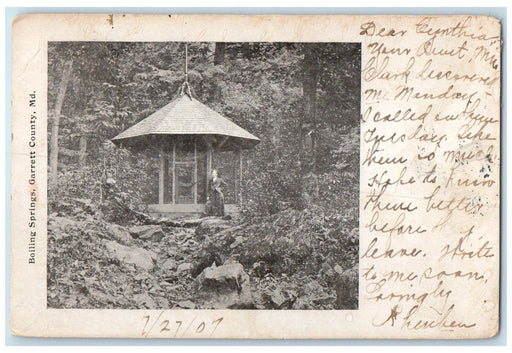 Boiling Springs, Garrett County, Md.
Dear Cynthia
Your Aunt, Mrs.
Clark
me Monday
I called on
Tuesday. Like
them so much.
Hope to know
them better
before I
leave. Write
to me soon.
Lovingly
7/27/07